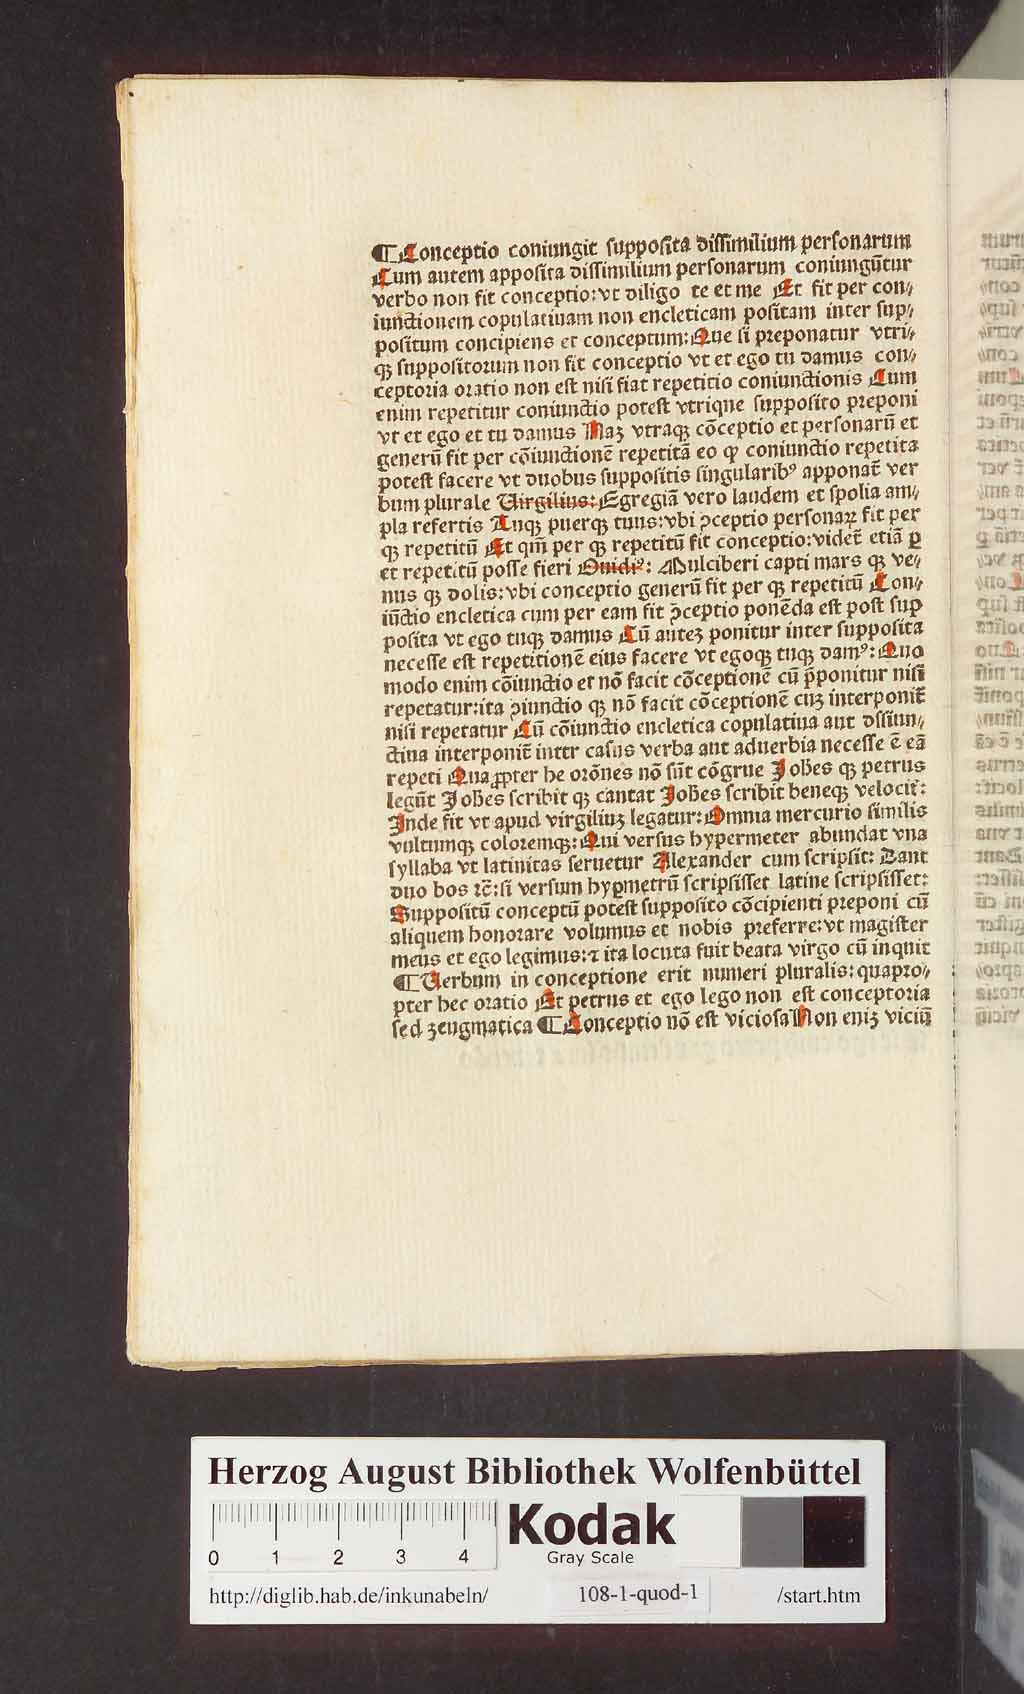 ¶ Conceptio coniungit supposita dissimilium personarum
Cum autem apposita dissimilium personarum coniungūtur
verbo non fit conceptio: vt diligo te et me Et fit per con⸗
iunctionem copulatiuam non encleticam positam inter sup⸗
positum concipiens et conceptum: Que si preponatur vtri⸗
qꝫ suppositorum non fit conceptio vt et ego tu damus con⸗
ceptoria oratio non est nisi fiat repetitio coniunctionis Cum
enim repetitur coniunctio potest vtrique supposito preponi
vt et ego et tu damus Naꝫ vtraqꝫ cōceptio et personarū et
generū fit per cōiunctionē repetitā eo ꝙ coniunctio repetita
potest facere vt duobus suppositis singularibꝰ apponat̄ ver
bum plurale Uirgilius: Egregiā vero laudem et spolia am⸗
pla refertis Tuqꝫ puerqꝫ tuus: vbi ꝯceptio personaꝝ fit per
qꝫ repetitū Et qm̄ per qꝫ repetitū fit conceptio: videt̄ etiā ꝑ
et repetitū posse fieri Ouidiꝰ: Mulciberi capti mars qꝫ ve⸗
nus qꝫ dolis: vbi conceptio generū fit per qꝫ repetitū Con⸗
iūctio encletica cum per eam fit ꝯceptio ponēda est post sup
posita vt ego tuqꝫ damus Cū auteꝫ ponitur inter supposita
necesse est repetitionē eius facere vt egoqꝫ tuqꝫ damꝰ: Quo
modo enim cōiunctio et nō facit cōceptionē cū p̄ponitur nisi
repetatur: ita ꝯiunctio qꝫ nō facit cōceptionē cuꝫ interponit̄
nisi repetatur Cū cōiunctio encletica copulatiua aut dissiun⸗
ctiua interponit̄ inter casus verba aut aduerbia necesse ē eā
repeti Quaꝓpter he orōnes nō sūt cōgrue Johēs qꝫ petrus
legūt Johēs scribit qꝫ cantat Johēs scribit beneqꝫ velocit̄:
Inde fit vt apud virgiliuꝫ legatur: Omnia mercurio similis
vultumqꝫ coloremqꝫ: Qui versus hypermeter abundat vna
syllaba vt latinitas seruetur Alexander cum scripsit: Dant
duo bos ꝛc̄: si versum hyꝑmetrū scripsisset latine scripsisset:
Suppositū conceptū potest supposito cōcipienti preponi cū
aliquem honorare volumus et nobis preferre: vt magister
meus et ego legimus: ꝛ ita locuta fuit beata virgo cū inquit
¶ Uerbum in conceptione erit numeri pluralis: quapro⸗
pter hec oratio Et petrus et ego lego non est conceptoria
sed zeugmatica ¶ Conceptio nō est viciosa Non eniꝫ viciū
Herzog August Bibliothek Wolfenbüttel
0 1 2 3 4
Kodak
Gray Scale
http://diglib.hab.de/inkunabeln/ 108-1-quod-1 /start.htm